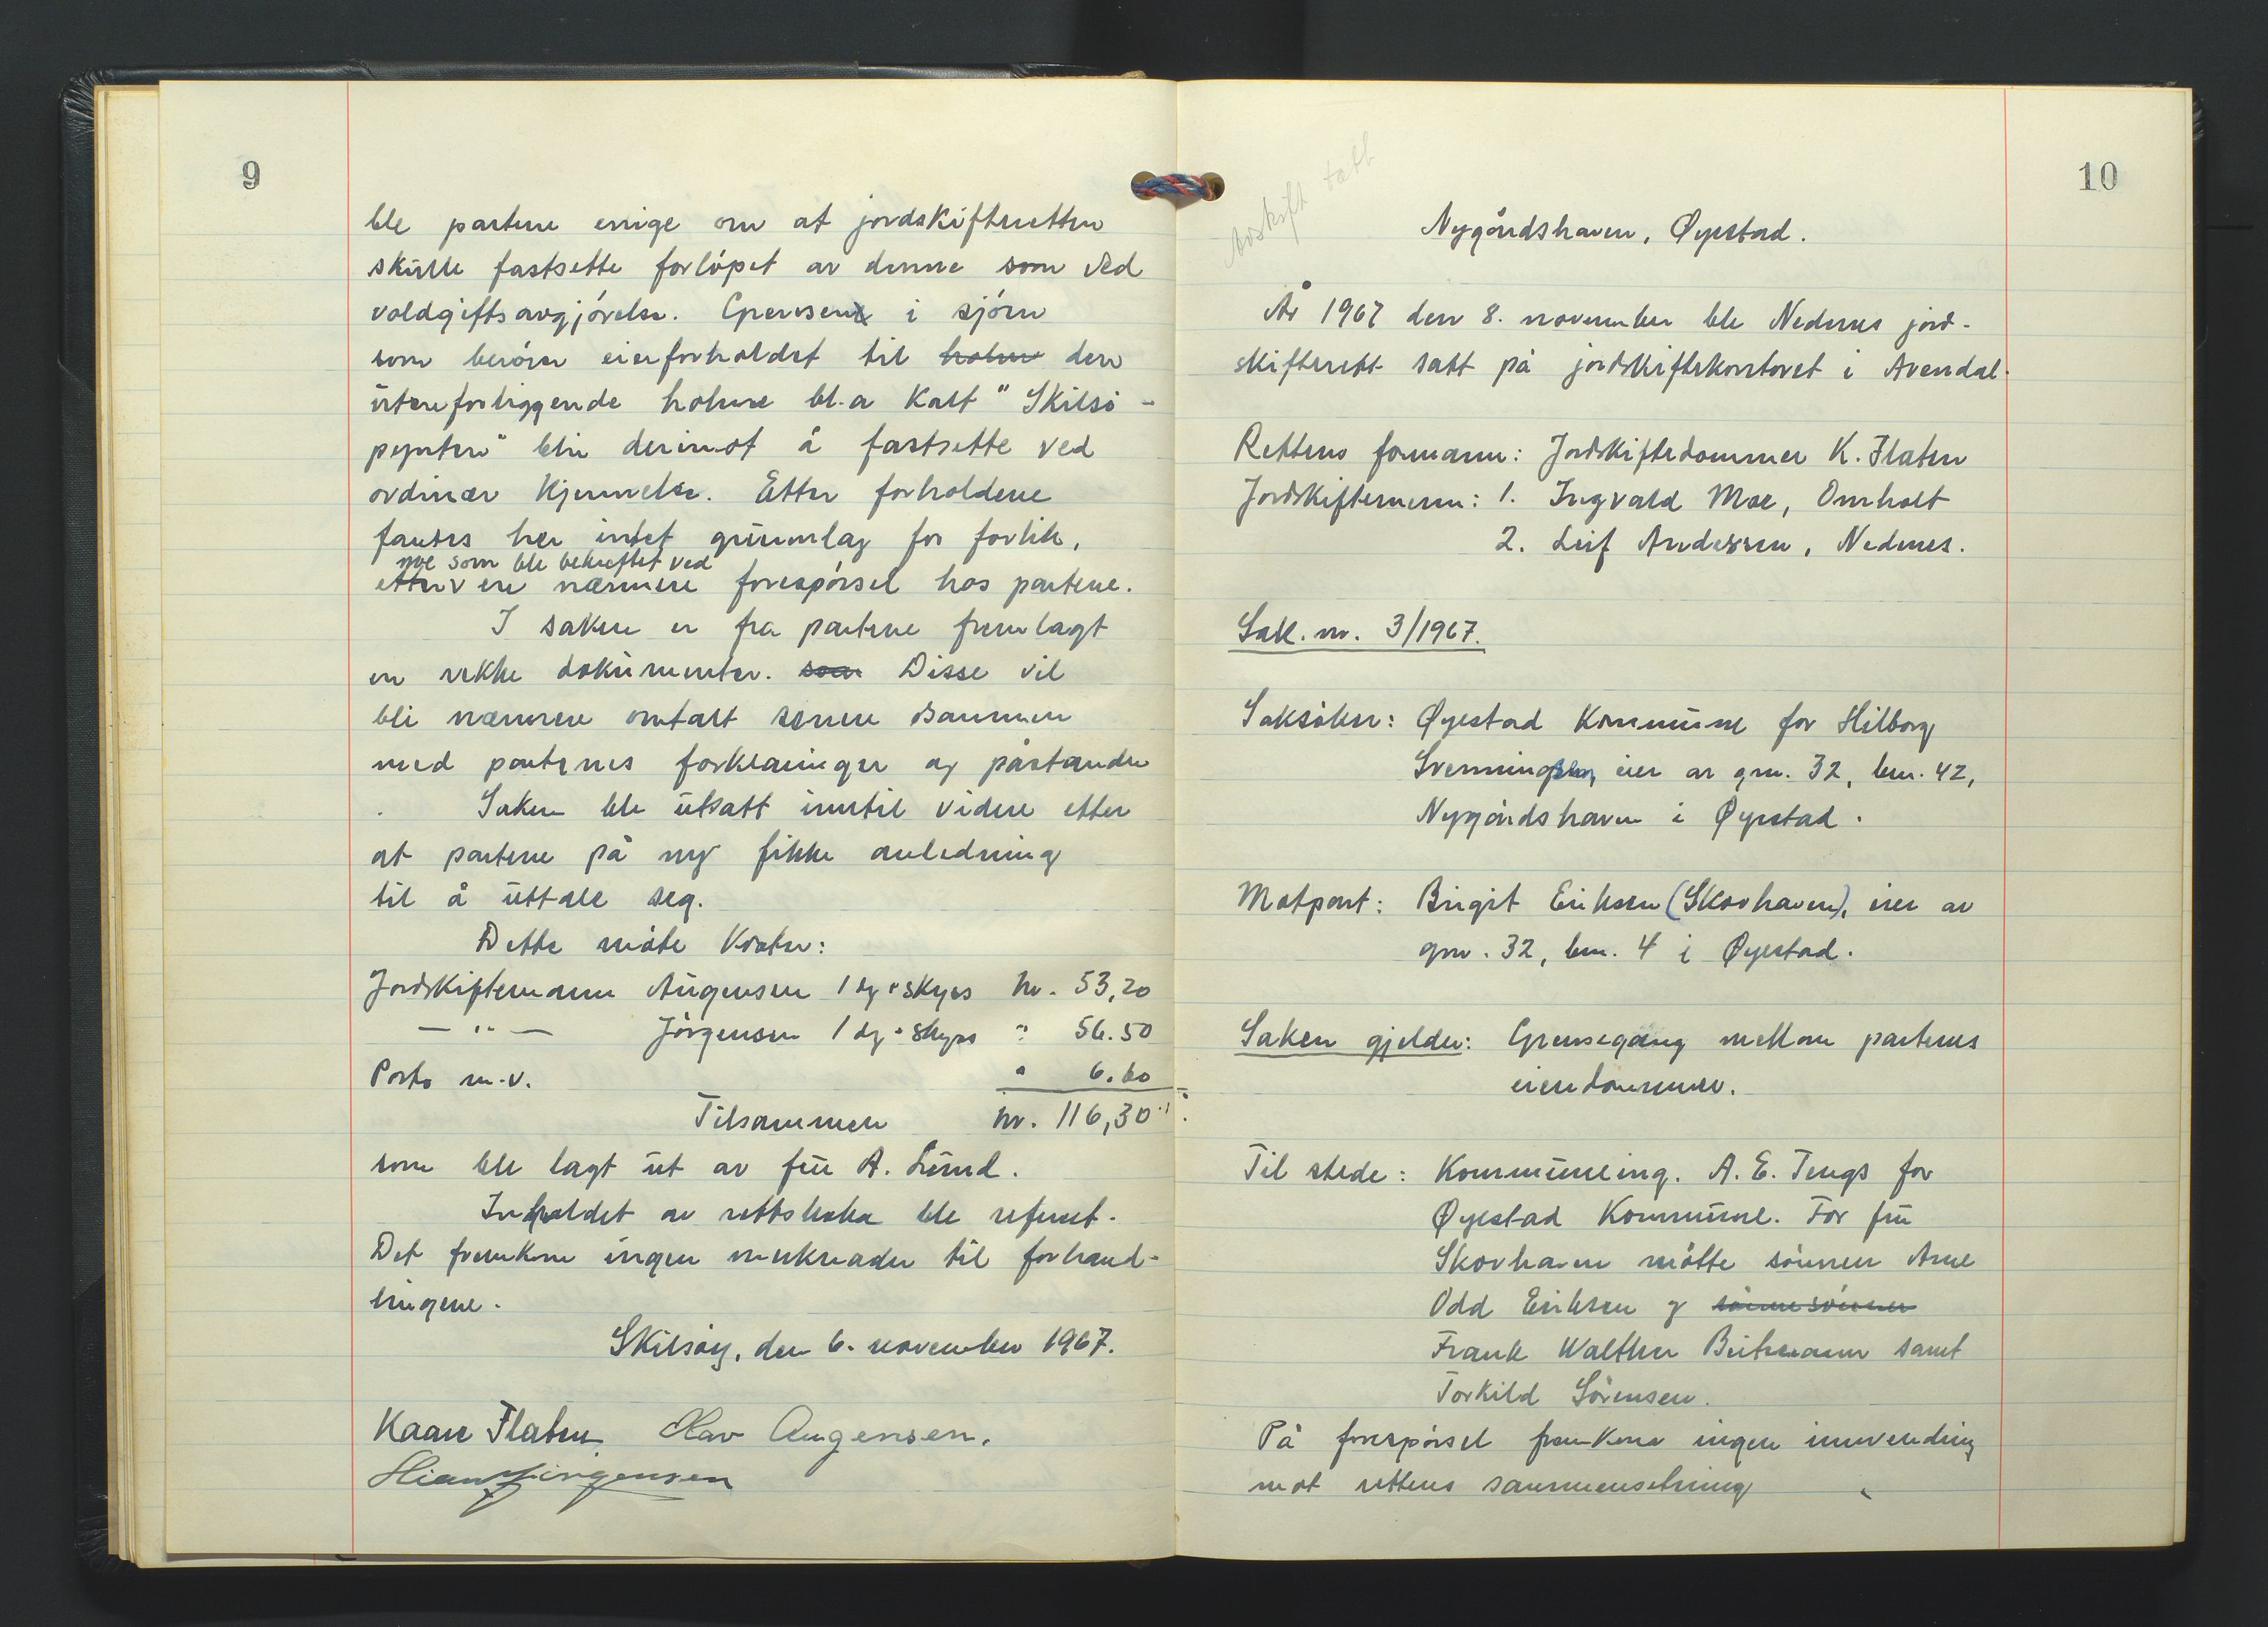 9
ble partene enige om at jordskifteretten
skulle fastsette forløpet av denne som ved
voldgiftsavgjørelse. Grensen i sjøen
som berører eierforholdet til holme den
utenforliggende holme bl.a kalt "Skilsø-
pynten" blir derimot å fastsette ved
ordinær kjennelse. Etter forholdene
fantes her intet grunnlag for forlik,
noe som ble bekreftet ved
etter v en nærmere forespørsel hos partene.
I saken er fra partene fremlagt
en rekke dokumenter. som Disse vil
bli nærmere omtalt senere sammen
med partenes forklaringer og påstander
. Saken ble utsatt inntil videre etter
at partene på ny fikk anledning
til å uttale seg.
Dette møte koster:
Jordskiftemann Augensen 1 dg + skyss kr. 53,20
— " — Jörgensen 1 dg + skyss " 56.50
Porto m.v. " 6.60
Tilsammen kr. 116,30
som ble lagt ut av fru A. Lund.
Inholdet av rettsboka ble referert.
Det fremkom ingen merknader til forhand-
lingene.
Skilsøy, den 6. november 1967.
Kaare Flaten Olav Augensen.
Jørgensen
10
Avskrift tatt
Nygårdshaven, Øyestad.
År 1967 den 8. november ble Nedenes jord-
skifterett satt på jordskiftekontoret i Arendal.
Rettens formann: Jordskiftedommer K. Flaten
Jordskiftemenn: 1. Ingvald Moe, Omholt
2. Leif Andersen, Nedenes.
Sak. nr. 3/1967.
Saksöker: Øyestad Kommune for Hilborg
Svenningsen, eier av gnr. 32, bnr. 42,
Nygårdshaven i Øyestad.
Motpart: Birgit Eriksen (Skovhaven), eier av
gnr. 32, bnr. 4 i Øyestad.
Saken gjelder: Grensegang mellom partenes
eiendommer.
Til stede: Kommuneing. A. E. Tengs for
Øyestad Kommune. For fru
Skovhaven møtte sønnen Arne
Odd Eriksen og sønnesønnen
Frank Walther Birkemann samt
Torkild Sörensen.
På forespørsel framkom ingen innvending
mot rettens sammensetning